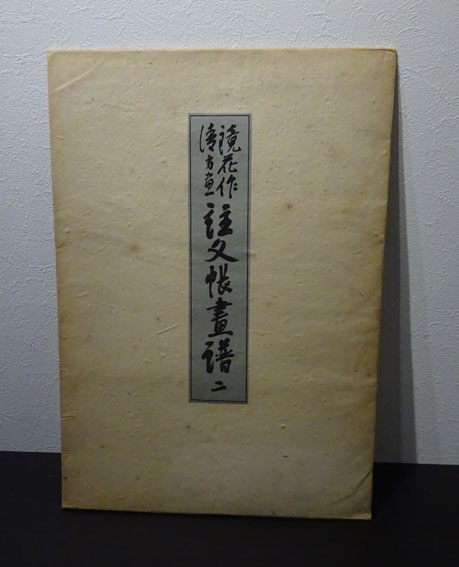 鏡花作
清方画
註文帳畫譜 二